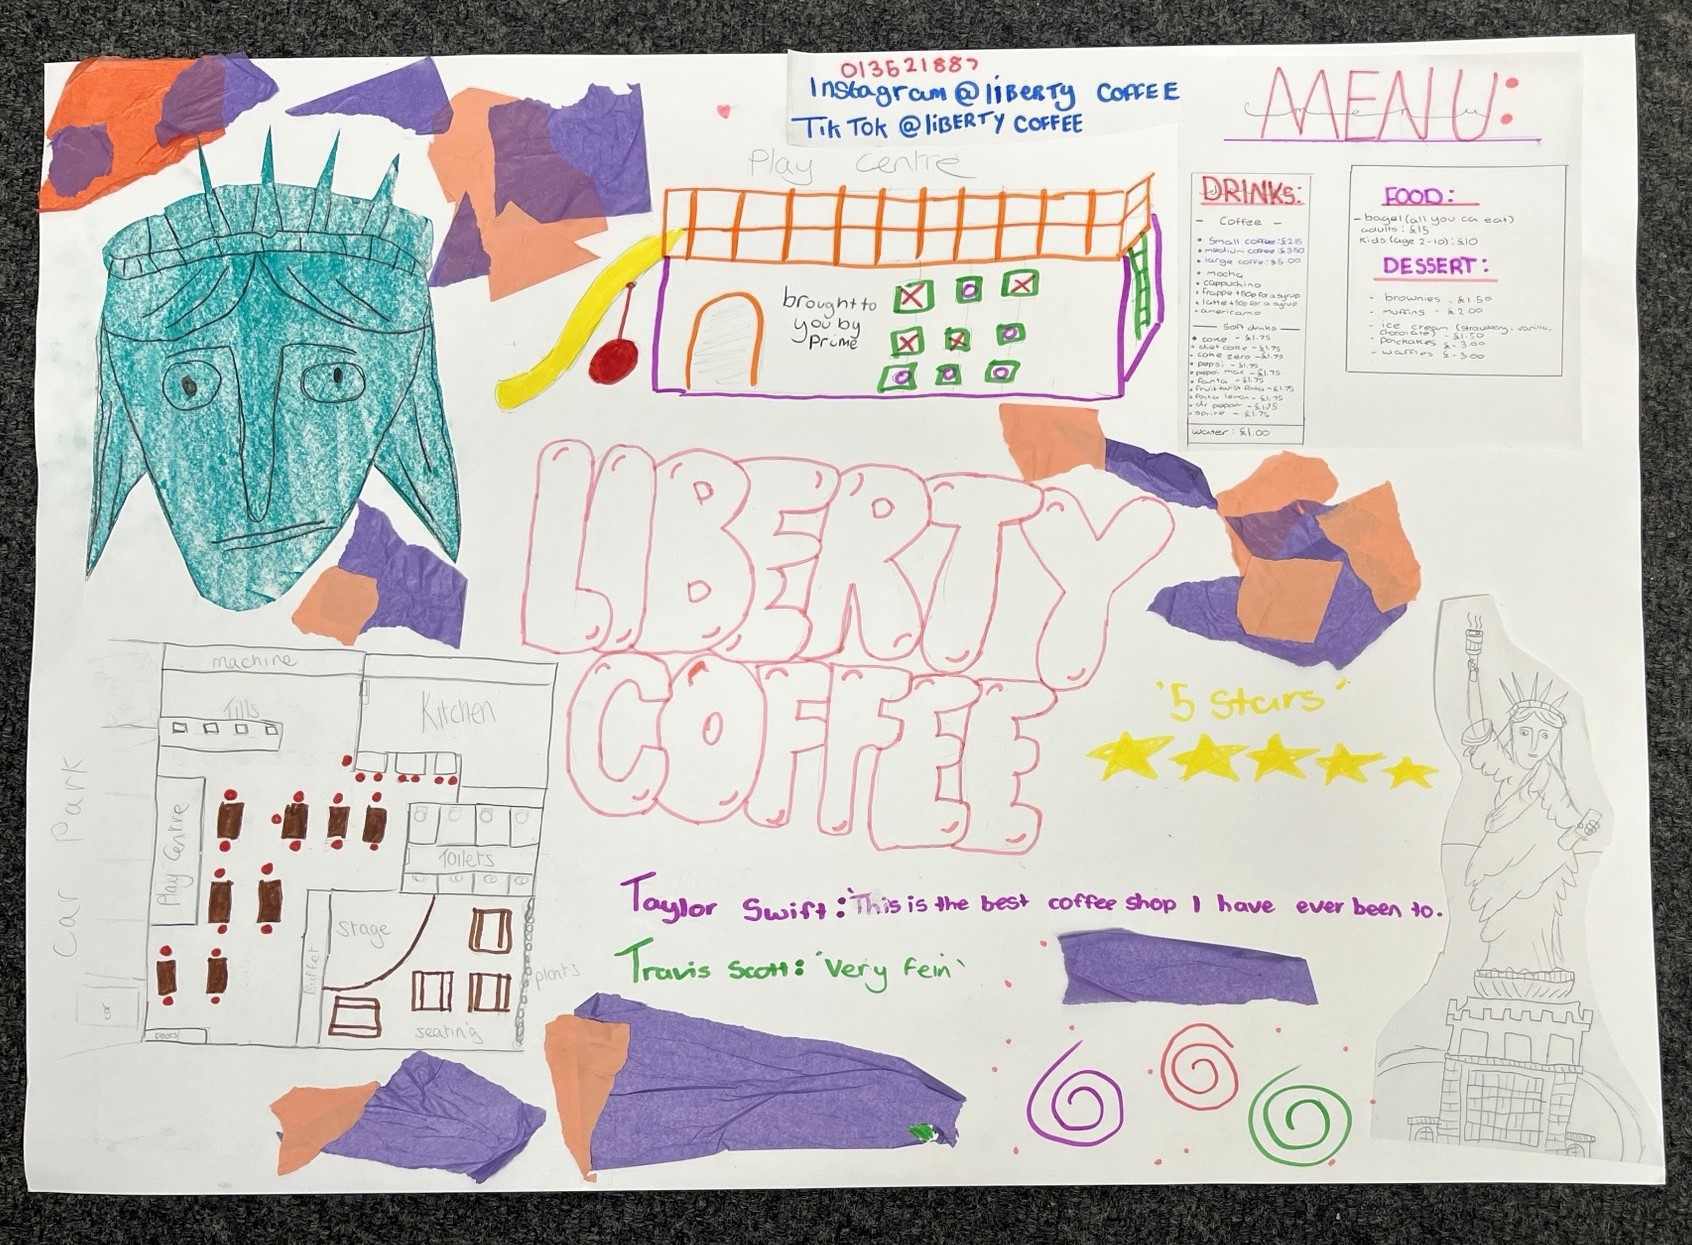 Instagram @ liBERTY COFFEE
Tik Tok @ liBERTY COFFEE
MENU:
Play Centre
brought to
you by
Prime
DRINKS:
- Coffee -
• medium coffee: £3.50
• large coffe: £5.00
• mocha
• cappuchino
• frappe +50p for a syrup
• latte +50p for a syrup
• americano
Soft drinks
• coke - £1.75
• diet coke - £1.75
• coke zero - £1.75
• pepsi - £1.75
• pepsi max - £1.75
• fanta - £1.75
• fruit twist fanta - £1.75
• fanta lemon - £1.75
• dr pepper - £1.75
• sprite - £1.75
water: £1.00
FOOD:
- bagel (all you ca eat)
adults: £15
kids (age 2-10): £10
DESSERT:
- brownies - £1.50
- muffins - £2.00
- ice cream (strawberry, vanilla,
chocolate) - £1.50
- pancakes £-3.00
- waffles £-3.00
LIBERTY
COFFEE
'5 Stars'
Taylor Swift: 'This is the best coffee shop I have ever been to.
Travis Scott: 'Very fein'
machine
Tills
Kitchen
Car Park
Play Centre
Toilets
Stage
Buffet
plants
seating
car